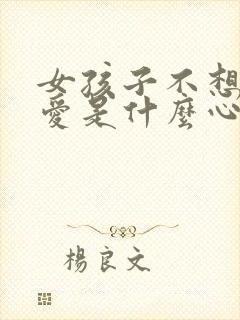 女孩子不想
愛是什麼心
楊良文